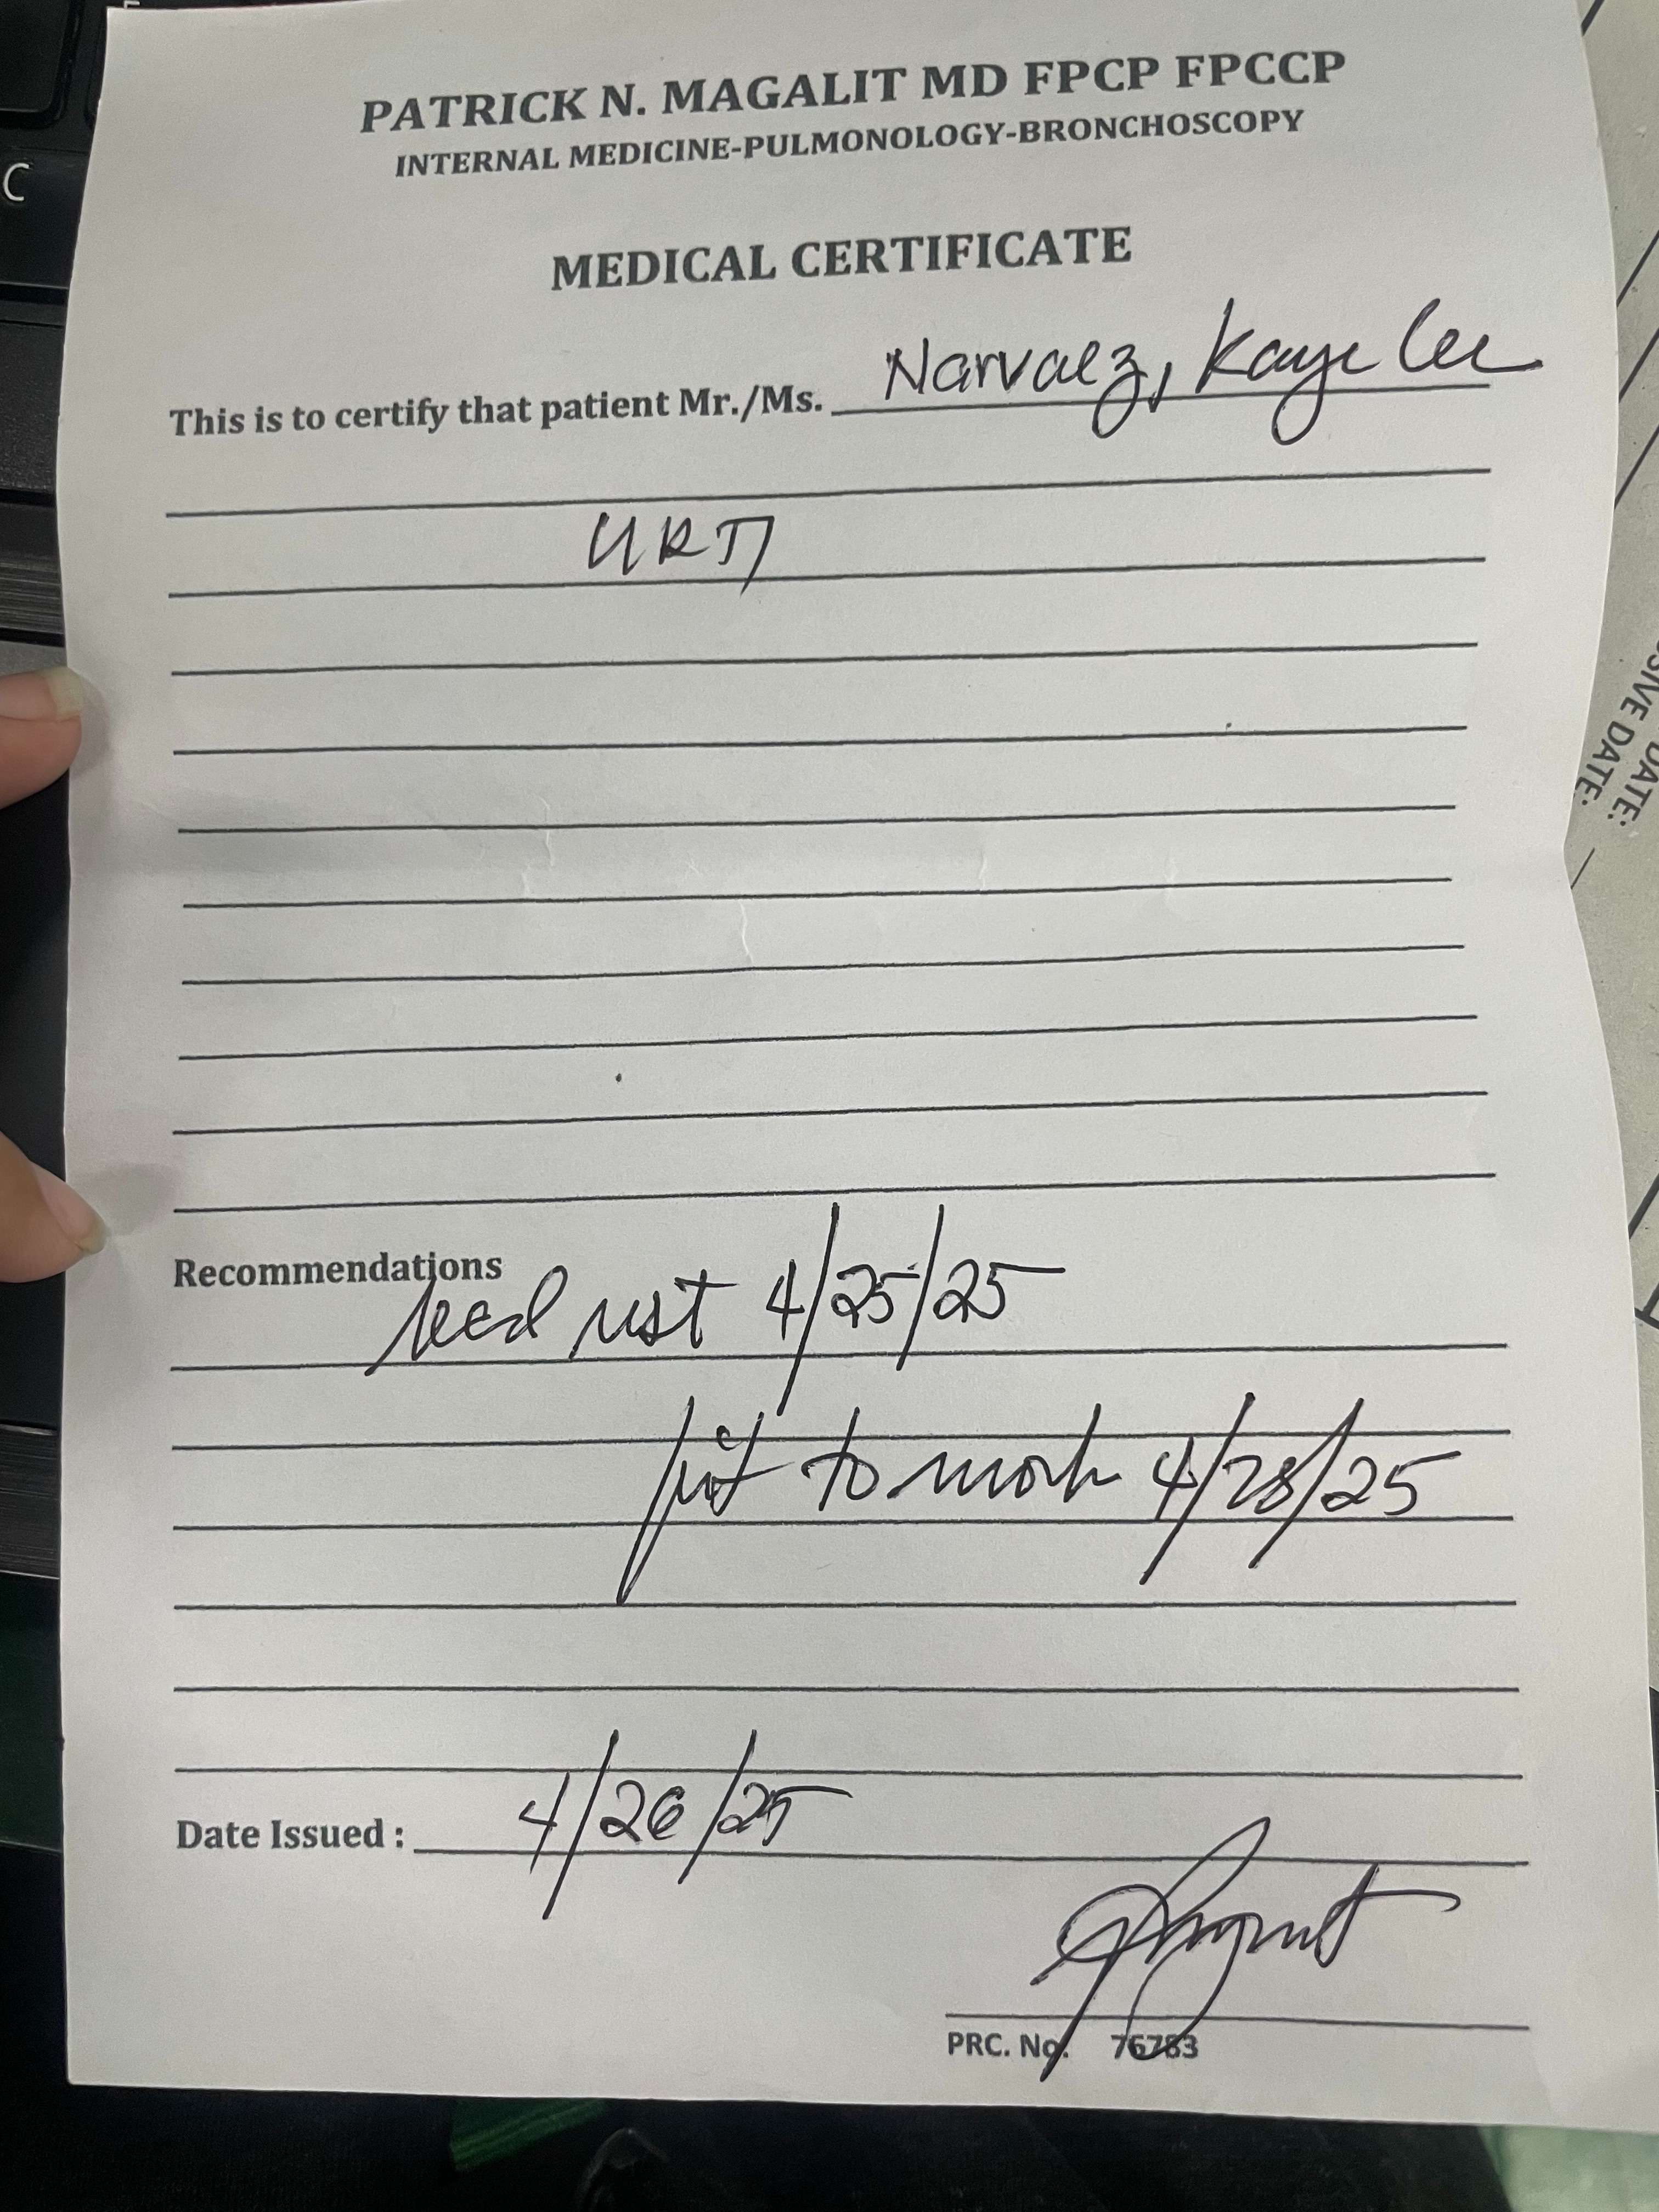 PATRICK N. MAGALIT MD FPCP FPCCP
INTERNAL MEDICINE-PULMONOLOGY-BRONCHOSCOPY
MEDICAL CERTIFICATE
This is to certify that patient Mr./Ms. Narvaez, Kaye Lee
URTI
Recommendations
bed rest 4/25/25
fit to work 4/28/25
Date Issued : 4/26/25
PRC. No. 76783
C
SSIVE DATE:
DATE: